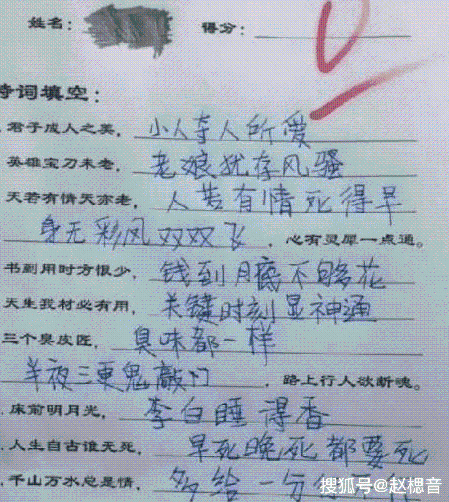 姓名： 得分：
诗词填空：
君子成人之美，小人夺人所爱
英雄宝刀未老，老娘犹存风骚
天若有情天亦老，人若有情死得早
身无彩凤双双飞，心有灵犀一点通。
书到用时方恨少，钱到月底不够花
天生我材必有用，关键时刻显神通
三个臭皮匠，臭味都一样
半夜三更鬼敲门，路上行人欲断魂。
床前明月光，李白睡得香
人生自古谁无死，早死晚死都要死
千山万水总是情，多给一分
搜狐号@赵楒音